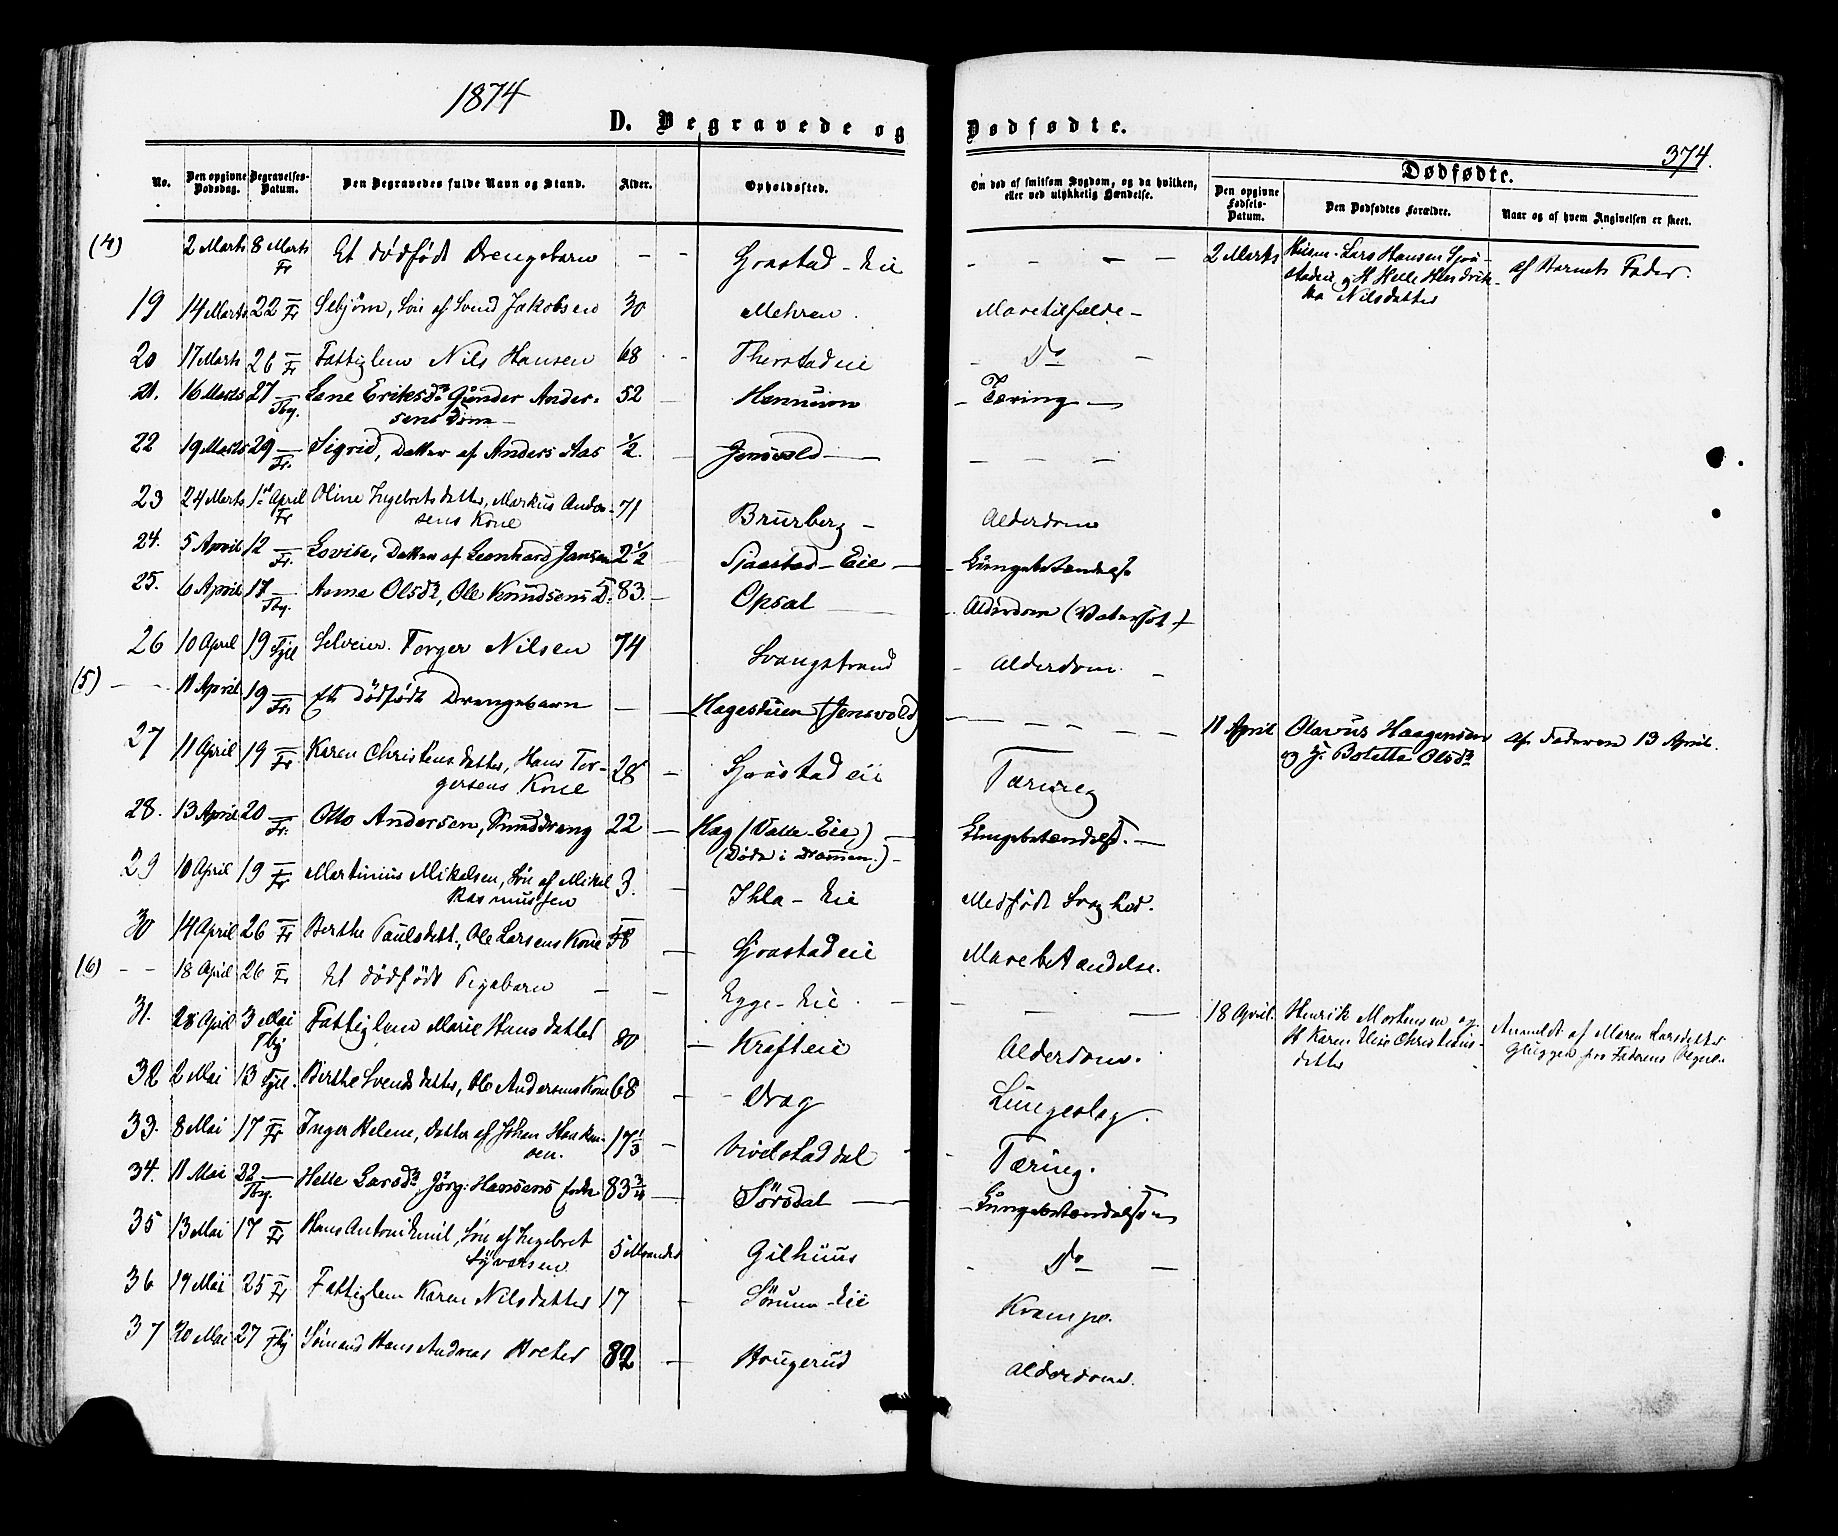 1874
D. Begravede og Dødfødte.
374.
No. Den opgivne Dødsdag. Begravelses-Datum. Den Begravedes fulde Navn og Stand. Alder. Opholdssted. Om død af smitsom Sygdom, og da hvilken, eller ved ulykkelig Hændelse. Dødfødte. Den opgivne Fødsels-Datum. Den Dødfødtes Forældre. Naar og af hvem Angivelsen er skeet.
(4) 2 Marts 8 Marts Fr Et dødfødt Drengebarn - - Graastad-Eie - - - - 2 Marts Lars Hansen Graa- af Barnets Fader.
stadeie og H Helle Hendrik-
ka Nilsdatter
19 14 Marts 22 Fr , Søn af Svend Jakobsen 30 Mehren. Mavetilfælde -
20 17 Marts 26 Fr Fattiglem Nils Hansen 68 - Therstadeie - Do -
21. 16 Marts 27 Tbg. Lene Eriksdr Gunder Ander- 52 - - Tæring -
sens
22 19 Marts 29 Fr. Sigrid, Datter af Anders Aas 1/2. - Jensvold - - - -
23 24 Marts 1st April Fr Oline Ingebretsdatter, Markus Ander- 71 Brurberg - Alderdom
sens Kone
24. 5 April 12 Fr. Lovise, Datter af Leonhard Jansen 2 1/2 - Sjaastad-Eie - Lungebetændelse
25. 6 April 17 Tbg. Anne Olsdr, Ole Knudsens 83. - Opsal - Alderdom (Vatersot)
26 10 April 19 Fjel Selveier Torger Nilsen 74 Svangstrand - Alderdom. -
(5) - - 11 April 19 Fr. Et dødfødt Drengebarn - - Hagestuen (Jensvold) - - - - 11 April Olavus Haagensen af Faderen 13 April.
og H. Botette Olsdr
27 11 April 19 Fr Karen Christensdatter, Hans Tor- 28 - Graastadeie Tæring
gersens Kone
28. 13 April 20 Fr. Otto Andersen, 22 - Hæg (Valle-Eie) - Lungebetændelse. -
(Døde i Drammen.) -
29 10 April 19 Fr Martinius Mikelsen, Søn af Mikel 3. - Ihle-Eie Medfødt Svaghed.
Rasmussen
30 14 April 26 Fr Berthe Paulsdatt., Ole Larsens Kone 58 - Graastadeie Mavebetændelse.
(6) - - 18 April 26 Fr Et dødfødt Pigebarn - - Egge-Eie. - - - - 18 April. Henrik Mortensen og Anmeldt af Maren Larsdatter
H Karen Christians- Gluggen paa Faderens Vegne.
datter
31. 28 April 3 Mai Tbg Fattiglem Marie Hansdatter 80 - Krafteie Alderdom.
32 2 Mai 13 Fjel. Berthe Svendsdatter, Ole Andersens Kone 68 - - Drag Lungeslag.
33. 8 Mai 17 Fr Inger Helene, Datter af Johan Haaken- 17 1/3 - Vivelstaddal - Tæring.
sen.
34. 11 Mai 22 Tbg. Helle Larsdr Jørg: Hansens Enke 83 3/4 - Sørsdal - - Lungebetændelse -
35 13 Mai 17 Fr Hans Anton Emil, Søn af Ingebret 5 Maaneder Gilhuus - Do -
Syversen
36 19 Mai 25 Fr Fattiglem Karen Nilsdatter 17 - Sørum-Eie Krampe.
37 20 Mai 27 Tbg Sømand Hans Andreas Holter 82 - Haugerud Alderdom.